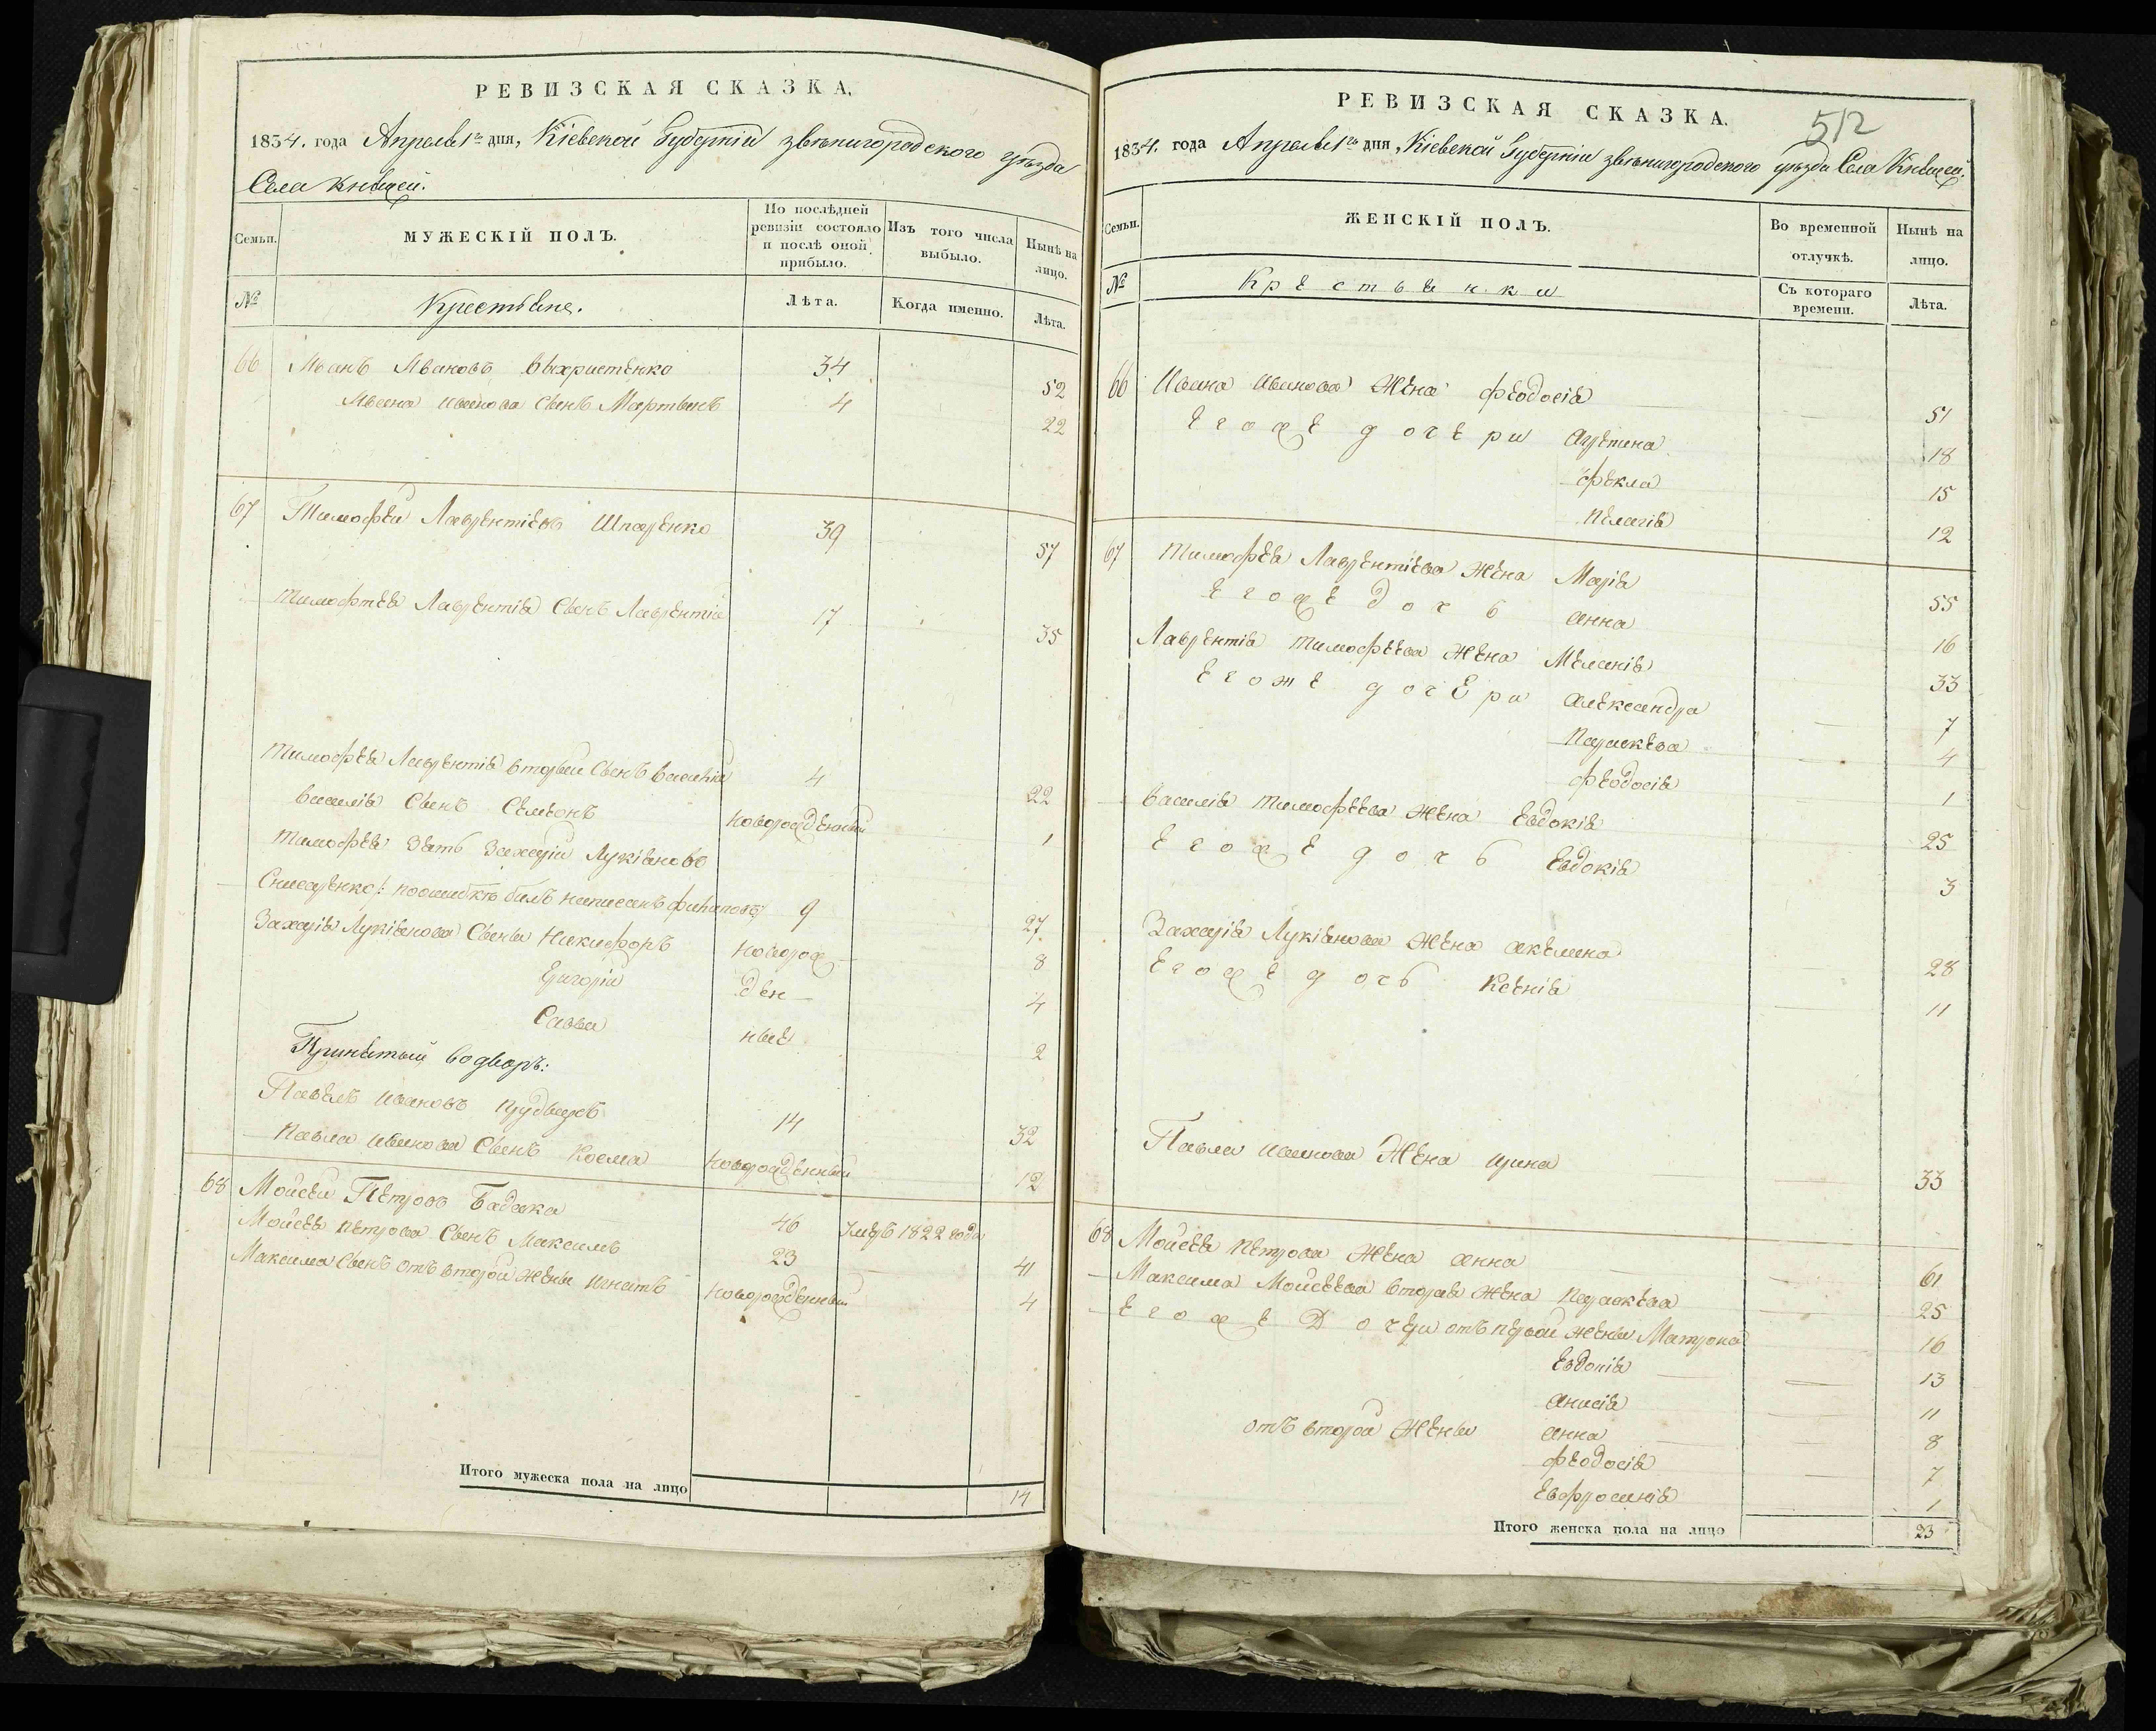 РЕВИЗСКАЯ СКАЗКА.
1834. года Апреля 1го дня, Кіевской Губерніи звенигородского уезда
Села Княжей.
Семьи.
МУЖЕСКІЙ ПОЛЪ.
По послѣдней ревизіи состояло и послѣ оной прибыло.
Изъ того числа выбыло.
Нынѣ на лицо.
№
Крестьяне.
Лѣта.
Когда именно.
Лѣта.
66 Иванъ Ивановъ 34 52
Ивана иванова сынъ Мартынъ 4 22
67 Тимофей Лаврентіевъ Шпаренко 39 57
тимофея Лаврентія сынъ Лаврентій 17 35
тимофея Лаврентія вторый сынъ василій 4 22
василія сынъ Семіонъ новорожденный 1
тимофея зять Захарій Лукіяновъ
поошибкѣ билъ написанъ филиповъ 9 27
Захарія Лукіянова сыны Никифоръ новорож 8
Григорій ден 4
Савва ные 2
Принятый водворъ:
Павелъ ивановъ 14 32
Павла иванова сынъ Косма новорожденный 12
68 Мойсей Петровъ Бадака 46 умеръ 1822 года
Мойсея петрова сынъ Максимъ 23 41
Максима сынъ отъ второй жены игнатъ новорожденный 4
Итого мужеска пола на лицо 14
РЕВИЗСКАЯ СКАЗКА.
512
1834. года Апреля 1го дня, Кіевской Губерніи звенигородского уезда Села Княжей.
Семьи.
ЖЕНСКІЙ ПОЛЪ.
Во временной отлучкѣ.
Нынѣ на лицо.
№
Крестьянки
Съ котораго времени.
Лѣта.
66 Ивана иванова жена феодосія 51
егоже дочери 18
фекла 15
пелагія 12
67 тимофея Лаврентіева жена Марія 55
егоже дочь анна 16
Лаврентія тимофеева жена Меланія 33
егоже дочери александра 7
параскева 4
феодосія 1
василія тимофеева жена евдокія 25
егоже дочь евдокія 3
Захарія Лукіянова жена акелина 28
егоже дочь Ксенія 11
Павла иванова жена ирина 33
68 Мойсея петрова жена анна 61
Максима Мойсеева вторая жена параскева 25
егоже Дочери отъ первой жены Матрона 16
евдокія 13
анисія 11
отъ второй жены анна 8
феодосія 7
евфросинія 1
Итого женска пола на лицо 23